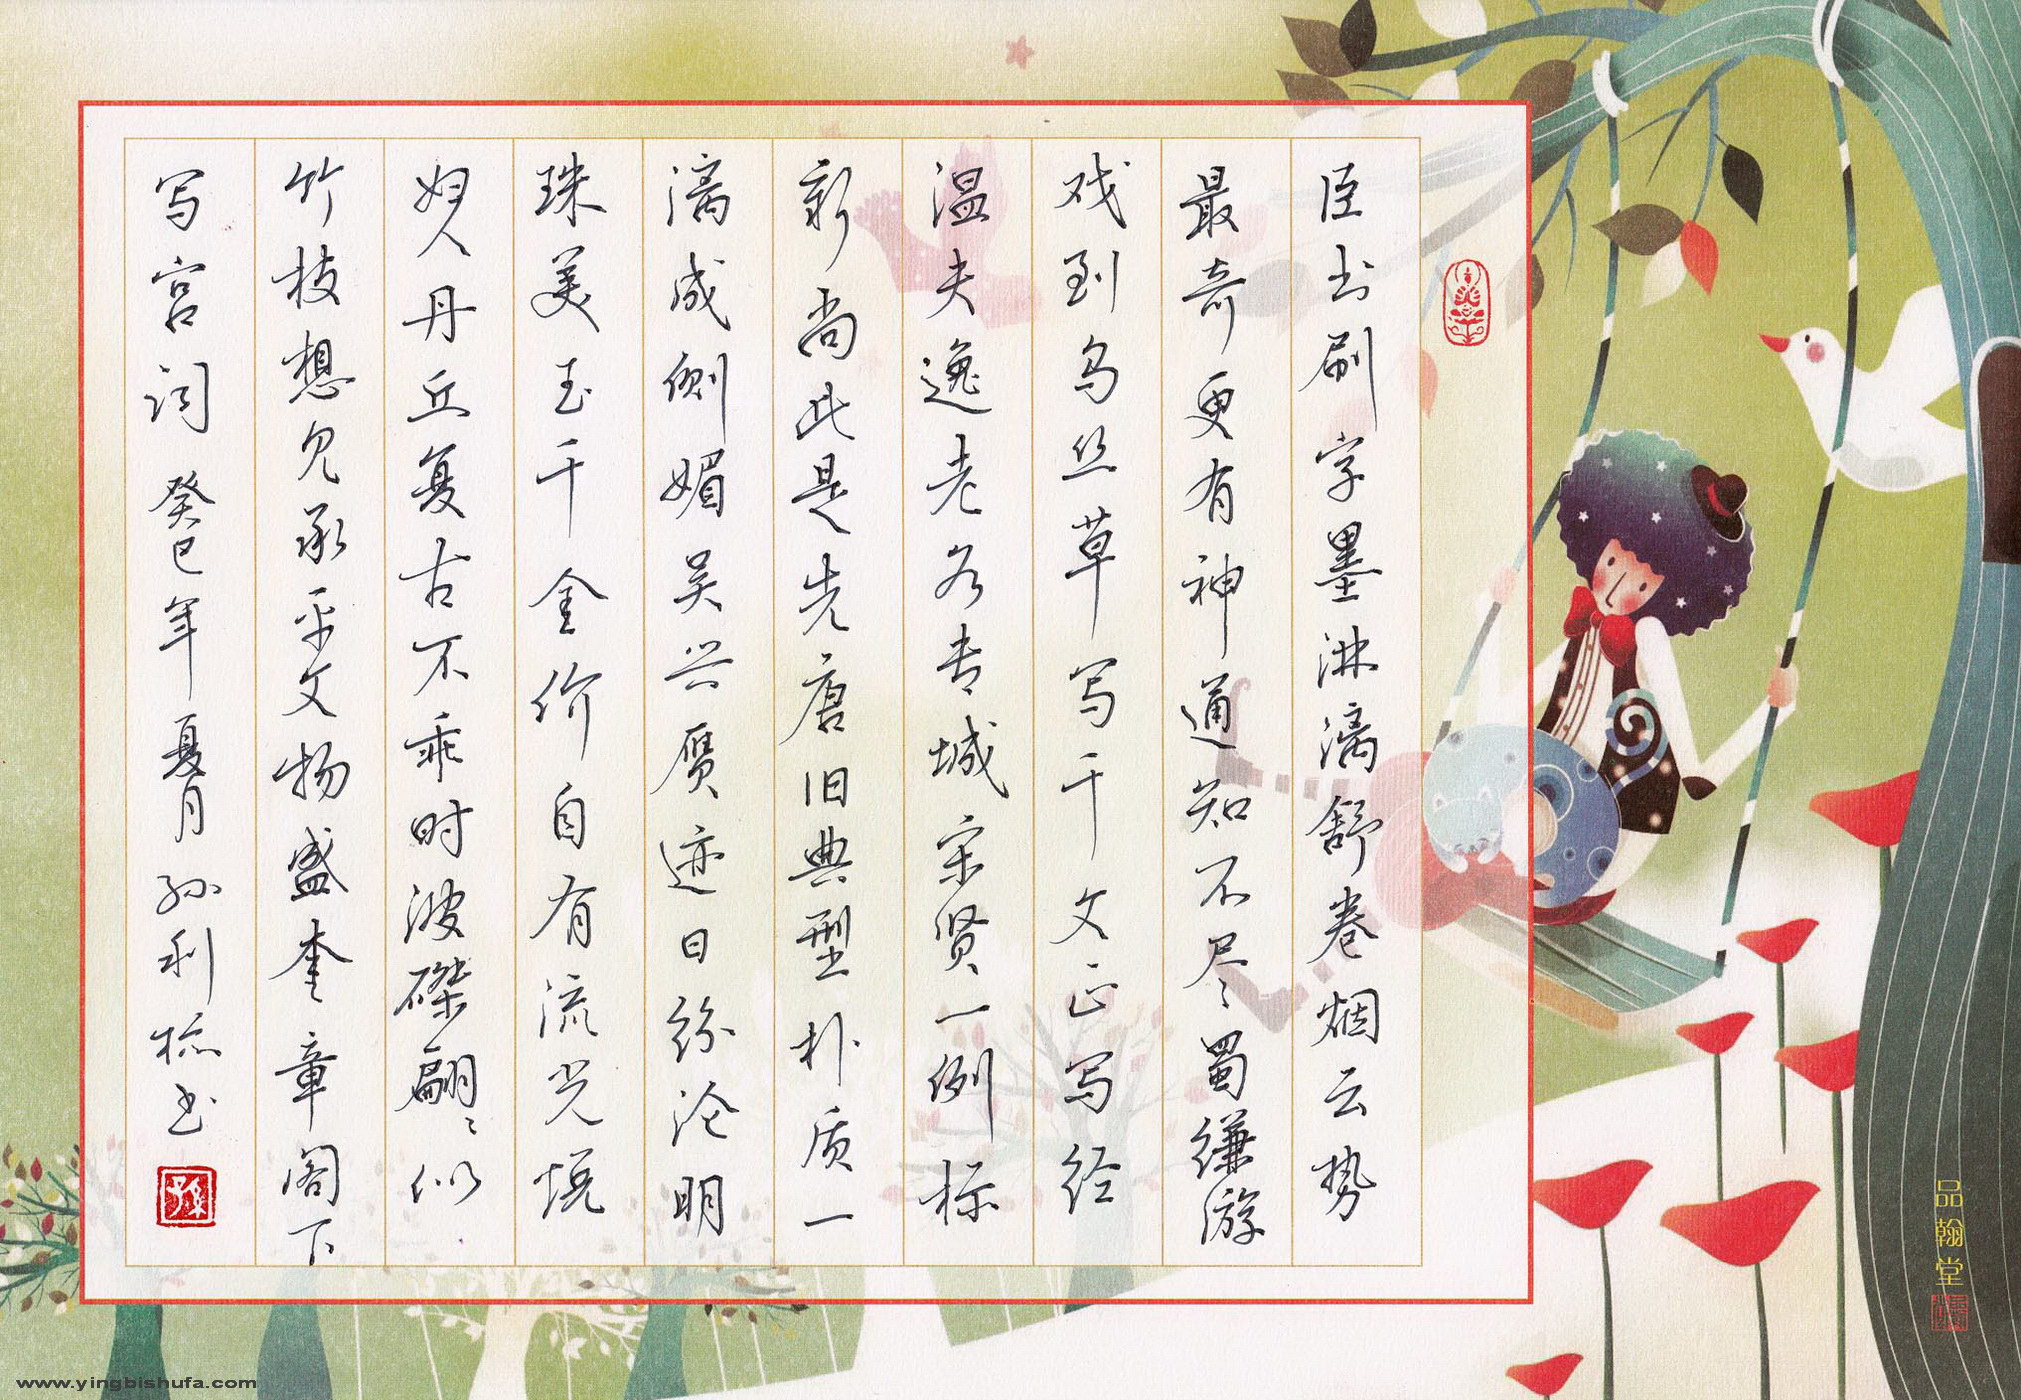 臣书刷字墨淋漓舒卷烟云势
最奇更有神通知不尽蜀缣游
戏到乌丝草写千文正写经
温夫逸老各专城宋贤一例标
新尚此是先唐旧典型朴质一
漓成侧媚吴兴赝迹日纷沦明
珠美玉千金价自有流光悦
妇人丹丘复古不乖时波磔翩〻似
竹枝想见承平文物盛奎章阁下
写宫词 癸巳年夏月 孙利 书
品翰堂
www.yingbishufa.com